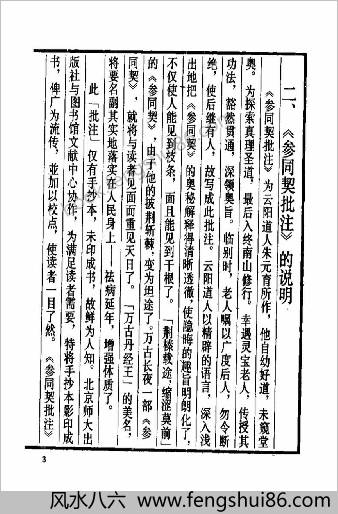 二、《参同契批注》的说明
《参同契批注》为云阳道人朱元育所作，他自幼好道，未窥堂
奥。为探索真理圣道，最后入终南山修行。幸遇灵宝老人，传授其
功法，豁然贯通，深领奥旨。临别时，老人嘱以广度后人，勿令断
绝，使后继有人，故写成此批注。云阳道人以精辟的语言，深入浅
出地把《参同契》的奥秘解释得清晰透徹，使隐晦的趣旨明朗化了，
不仅使人能见到枝条，而且能见到干根了。「荆榛载途，缩涩莫前」
的《参同契》，由于他的披荆斩棘，变为坦途了。万古长夜一部《参
同契》，就将与读者见面而重见天日了。「万古丹经王」的美名，
将要名副其实地落实在人民身上——祛病延年，增强体质了。
此「批注」仅有手抄本，未印成书，故鲜为人知。北京师大出
版社与图书馆文献中心协作，为满足读者需要，特将手抄本影印成
书，俾广为流传，並加以校点，使读者一目了然。《参同契批注》
3
风水八六 - www.fengshui86.com